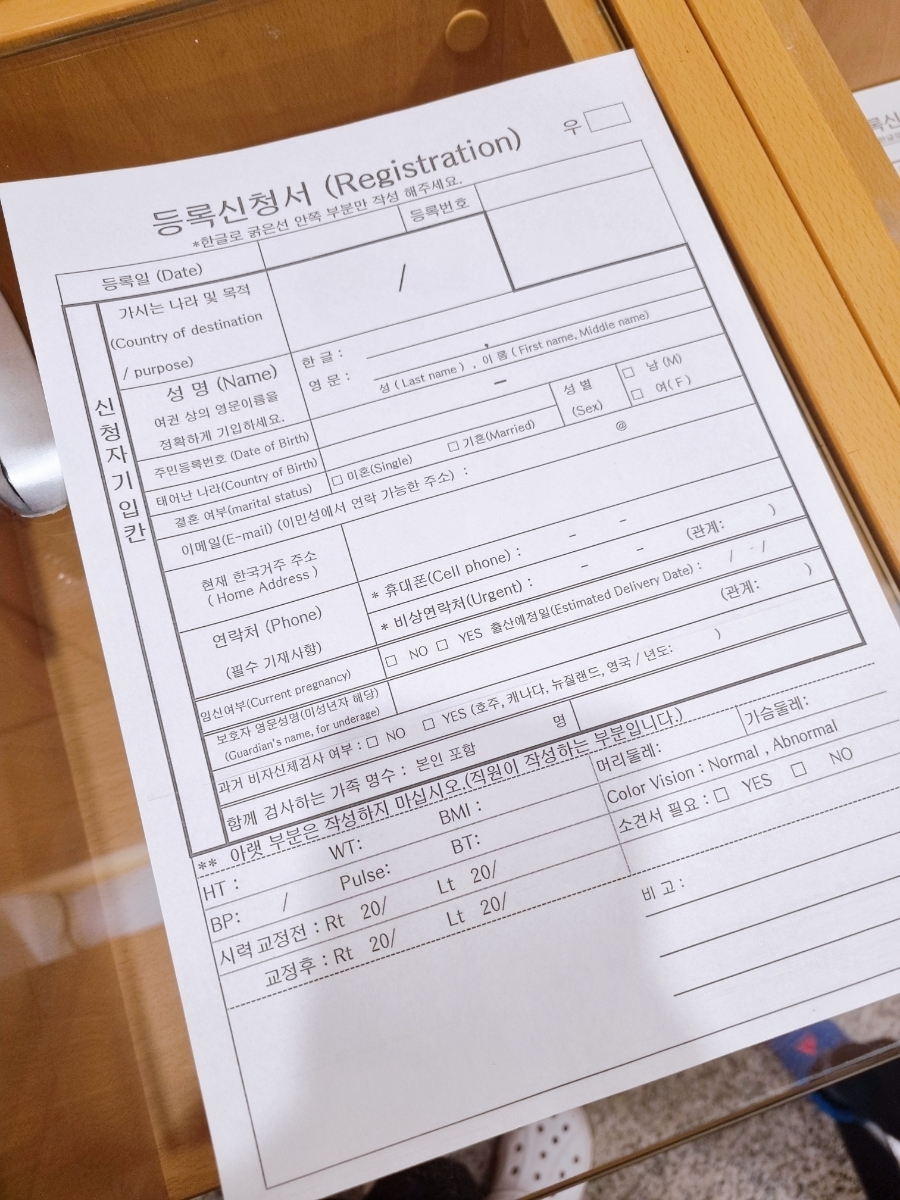 우
등록신청서 (Registration)
*한글로 굵은선 안쪽 부분만 작성 해주세요.
등록일 (Date)
등록번호
신청자기입란
가시는 나라 및 목적
(Country of destination
/ purpose)
/
성 명 (Name)
여권 상의 영문이름을
정확하게 기입하세요.
한 글 :
영 문 : ,
성 ( Last name ) , 이 름 ( First name, Middle name)
주민등록번호 (Date of Birth) –
태어난 나라(Country of Birth)
성 별
(Sex)
□ 남 (M)
□ 여( F )
결혼 여부(marital status) □ 미혼(Single) □ 기혼(Married)
이메일(E-mail) (이민성에서 연락 가능한 주소) : @
현재 한국거주 주소
( Home Address )
연락처 (Phone)
(필수 기재사항)
* 휴대폰(Cell phone) : – –
* 비상연락처(Urgent) : – – (관계: )
임신여부(Current pregnancy) □ NO □ YES 출산예정일(Estimated Delivery Date) : / /
보호자 영문성명(미성년자 해당)
(Guardian's name, for underage)
(관계: )
과거 비자신체검사 여부 : □ NO □ YES (호주, 캐나다, 뉴질랜드, 영국 / 년도: )
함께 검사하는 가족 명수 : 본인 포함 명
** 아랫 부분은 작성하지 마십시오.(직원이 작성하는 부분입니다.)
HT : WT: BMI : 머리둘레: 가슴둘레:
BP: / Pulse: BT: Color Vision : Normal , Abnormal
시력 교정전 : Rt 20/ Lt 20/ 소견서 필요 : □ YES □ NO
교정후 : Rt 20/ Lt 20/
비 고 :
록신